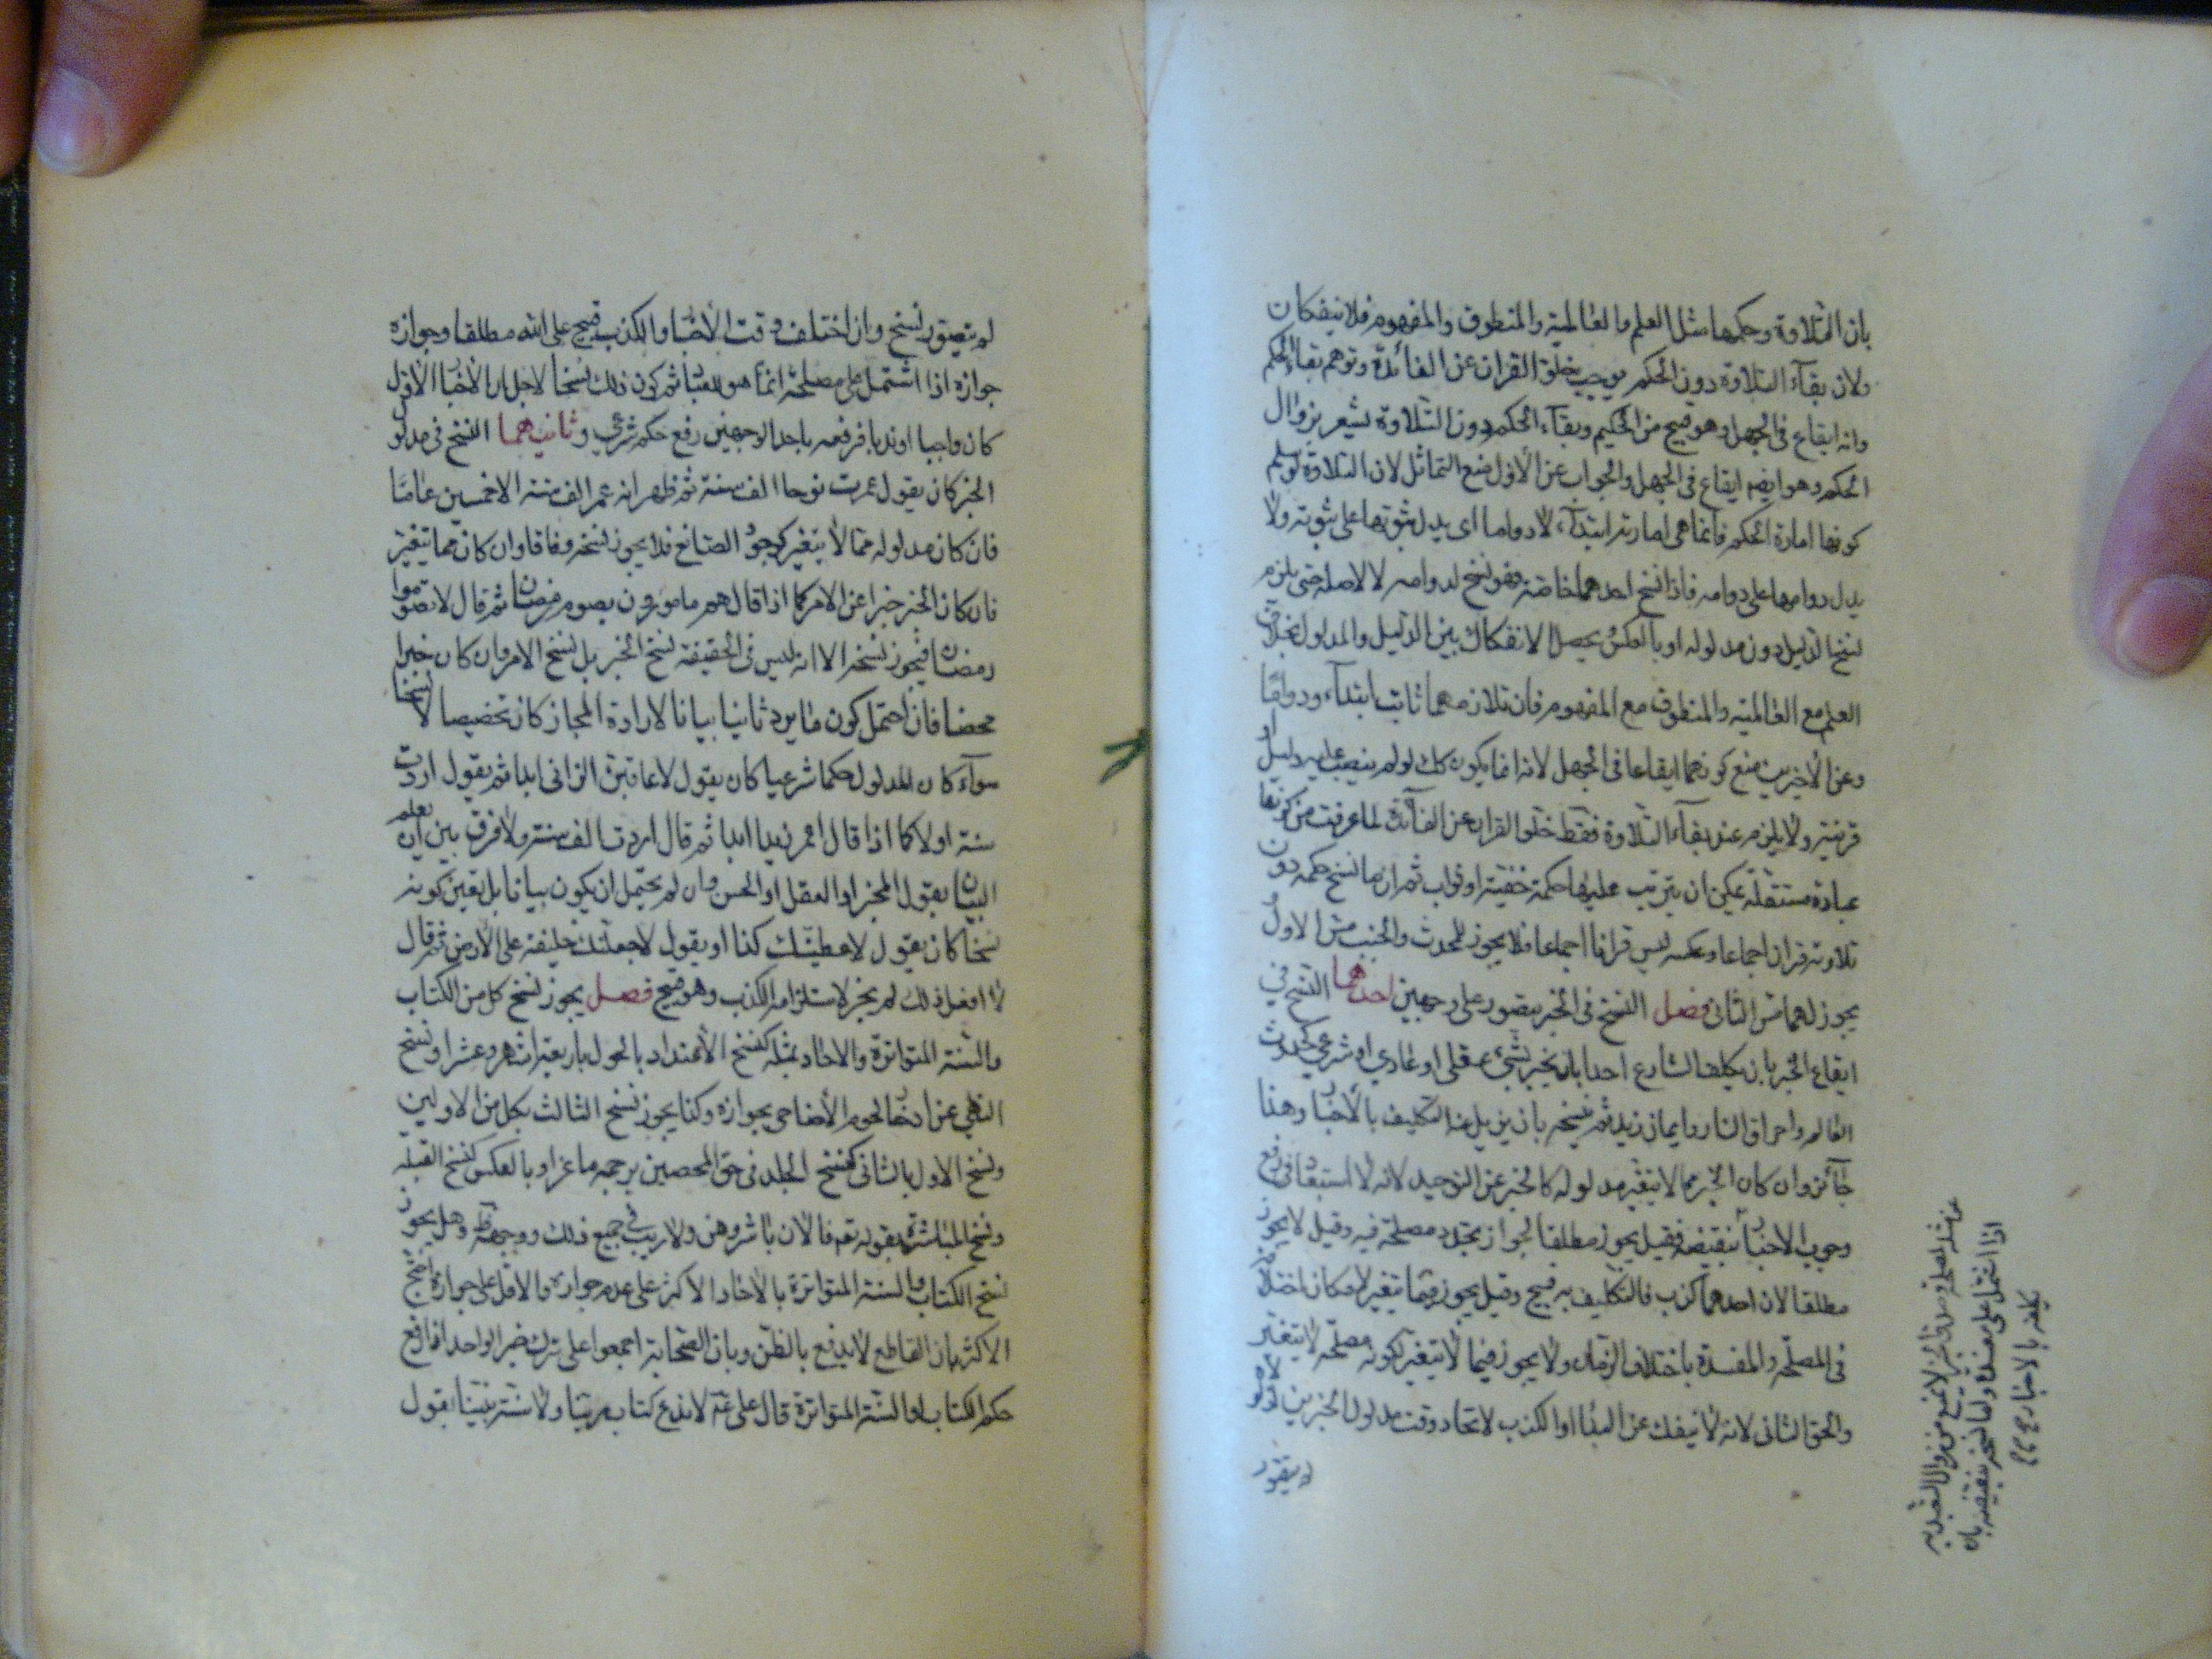 بان التلاوة وحكمها مثل العلم والعالمية والمنطوق والمفهوم فلا ينفكان
ولان بقاء التلاوة دون الحكم يوجب خلو القران عن الفائدة وتوهم بقاء الحكم
وانه ايقاع في الجهل وهو قبيح من الحكيم وبقاء الحكم دون التلاوة يشعر بزوال
الحكم وهو ايضا ايقاع في الجهل والجواب عن الاول منع التماثل لان التلاوة لو سلم
كونها امارة الحكم فانما هي امارته ابتداء لا دواما اى يدل ثبوتها على ثبوته ولا
يدل دوامها على دوامه فاذا نسخ احدهما خاصة فهو نسخ لدوامه لا لاصله حتى يلزم
نسخ الدليل دون مدلوله او بالعكس يحصل الانفكاك بين الدليل والمدلول بخلاف
العلم مع العالمية والمنطوق مع المفهوم فان تلازمهما ثابت ابتداء ودواما
وعن الاخيرين منع كونهما ايقاعا في الجهل لانه انما يكون كك لو لم ينصب عليه دليل او
قرينة ولا يلزم عند بقاء التلاوة فقط خلو القران عن الفائدة لما عرفت من كونها
عبادة مستقلة يمكن ان يترتب عليها حكمة خفية او ثواب ثم ان ما نسخ حكمه دون
تلاوته قران اجماعا وعكسه ليس قرانا اجماعا فلا يجوز للمحدث والجنب مس الاول
يجوز لهما مس الثاني فصل النسخ في الخبر يتصور على وجهين احدهما النسخ في
ايقاع الخبر بان يكلف الشارع احدا بان يخبر بشيء عقلي او عادي او شرعي كحدوث
العالم واحراق النار وايمان زيد ثم ينسخه بان يزيل عنه التكليف بالاخبار وهذا
جائز وان كان الخبر مما لا يتغير مدلوله كالخبر عن التوحيد لانه لا استبعاد في رفع
وجوب الاخبار بنقيضه فقيل يجوز مطلقا لجواز تجدد مصلحة فيه وقيل لا يجوز
مطلقا لان احدهما كذب فالتكليف به قبيح وقيل يجوز فيما يتغير لامكان اختلاف
في المصلحة والمفسدة باختلاف الزمان ولا يجوز فيما لا يتغير لكونه مصلحة لا يتغير
والحق الثاني لانه لا ينفك عن البداء او الكذب لاتحاد وقت مدلول الخبرين
لم يتصور
اذا اشتمل على مصلحة
لم يتصور نسخ وان اختلف وقت الاخبار والكذب قبيح على الله مطلقا وجوازه
جوازه اذا اشتمل على مصلحة انما هو للعباد ثم كون ذلك نسخا لاجل ان الاخبار الاول
كان واجبا او ندبا فرفعه باحد الوجهين رفع حكم شرعي وثانيهما النسخ في مدلول
الخبر كان يقول عمرت نوحا الف سنة ثم ظهر انه عمر الف سنة الا خمسين عاما
فان كان مدلوله مما لا يتغير كوجود الصانع فلا يجوز نسخه وفاقا وان كان مما يتغير
فان كان الخبر خبرا عن الامر كما اذا قال هم مامورون بصوم رمضان ثم قال لا تصوموا
رمضان فيجوز نسخه الا انه ليس في الحقيقة نسخ الخبر بل نسخ الامر وان كان خبرا
محضا فان احتمل كون ما يرد ثانيا بيانا لارادة المجاز كان تخصيصا لا نسخا
سواء كان المدلول حكما شرعيا كان يقول لاعاقبن الزاني ابدا ثم يقول اردت
سنة او لا كما اذا قال اعمر زيدا ابدا ثم قال اردت الف سنة ولا فرق بين ان يعلم
البيان بقول المخبر او العقل او الحس وان لم يحتمل ان يكون بيانا بل تعين كونه
نسخا كان يقول لاعطينك كذا او يقول لاجعلنك خليفة على الارض ثم قال
لا افعل ذلك لم يجز لاستلزامه الكذب وهو قبيح فصل يجوز نسخ كل من الكتاب
والسنة المتواترة والاحاد بمثله كنسخ الاعتداد بالحول باربعة اشهر وعشرا ونسخ
النهي عن ادخار لحوم الاضاحي بجوازه وكذا يجوز نسخ الثالث بكل من الاولين
ونسخ الاول بالثاني كنسخ الجلد في حق المحصنين برجمه ماعزا وبالعكس كنسخ القبلة
ونسخ المباشرة بقوله تعه فالان باشروهن ولا ريب في جميع ذلك ووجهه ظ وهل يجوز
نسخ الكتاب والسنة المتواترة بالاحاد الاكثر على عدم جوازه والاقل على جوازه احتج
الاكثر بان القاطع لا يدفع بالظن وبان الصحابة اجمعوا على ترك خبر الواحد اذا رفع
حكم الكتاب او السنة المتواترة قال على ع لا ندع كتاب ربنا ولا سنة نبينا بقول